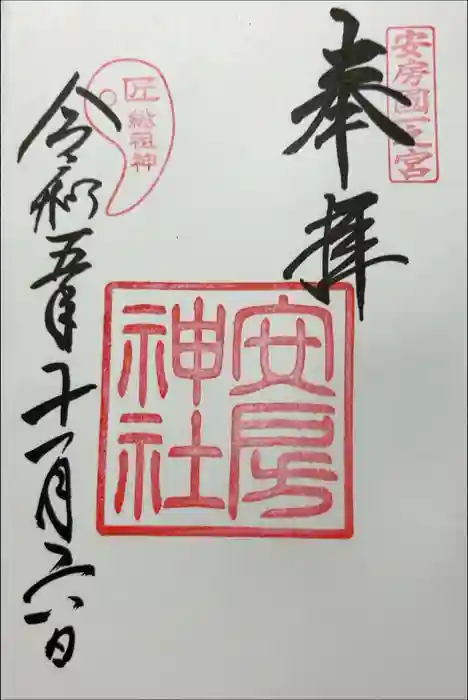 安房國一之宮
奉拝
安房
神社
匠
総祖神
令和五年十一月二八日